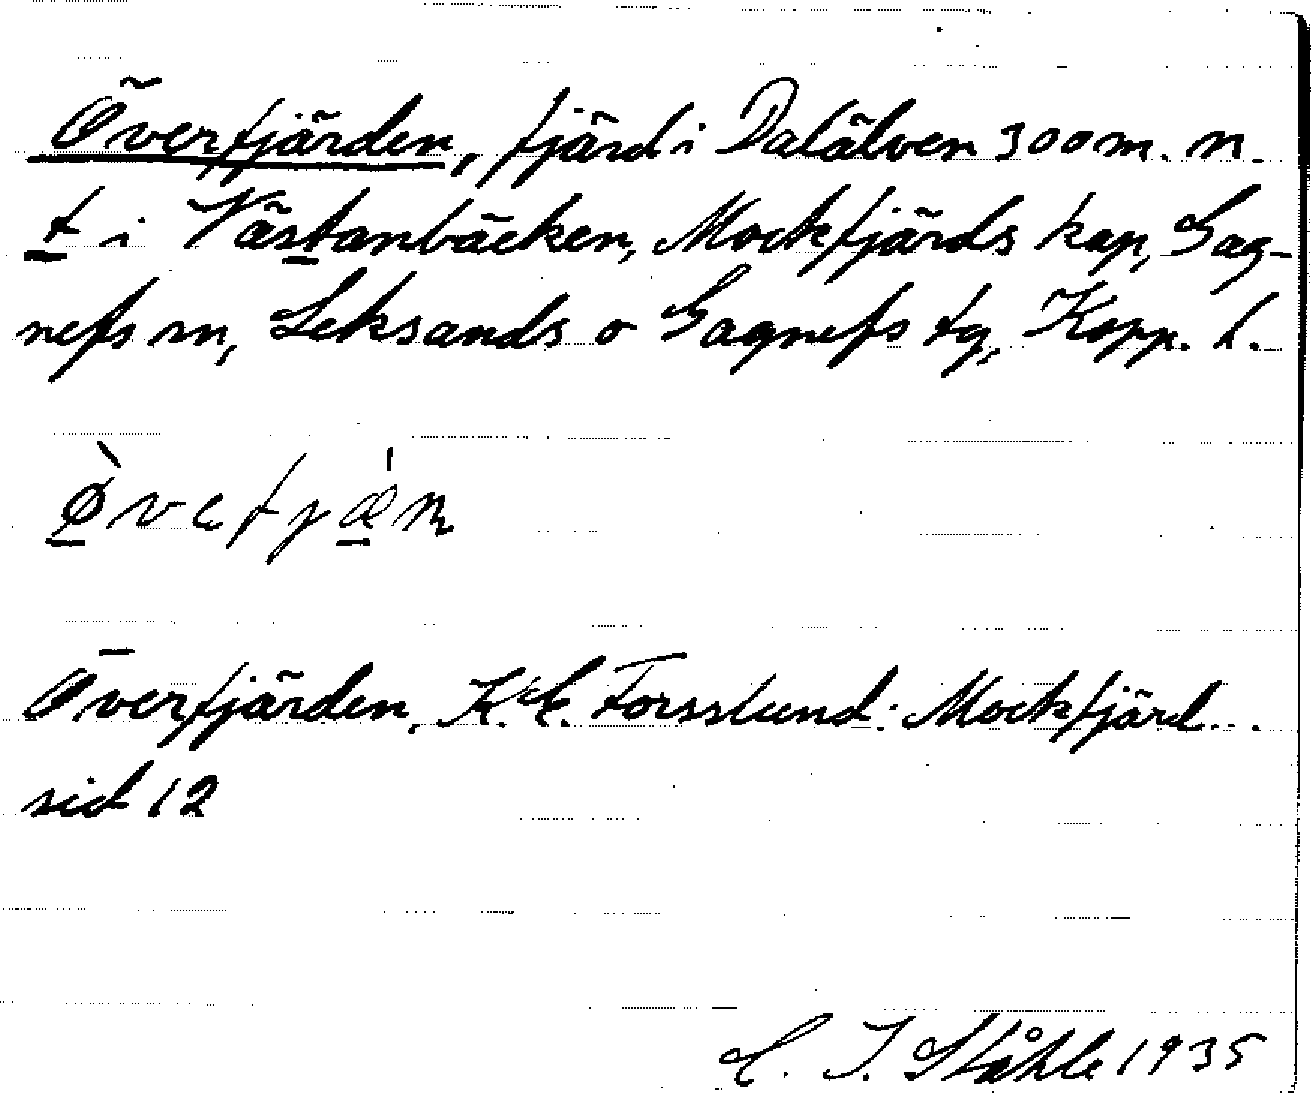 Överfjärden, fjärd i Dalälven 300 m. n.
t i Västanbäcken, Mockfjärds kap, Gag-
nefs sn, Leksands o Gagnefs tg, Kopp. l.
Överfjärden, K.E. Forsslund: Mockfjärd...
sid 12
C. I. Ståhle 1935